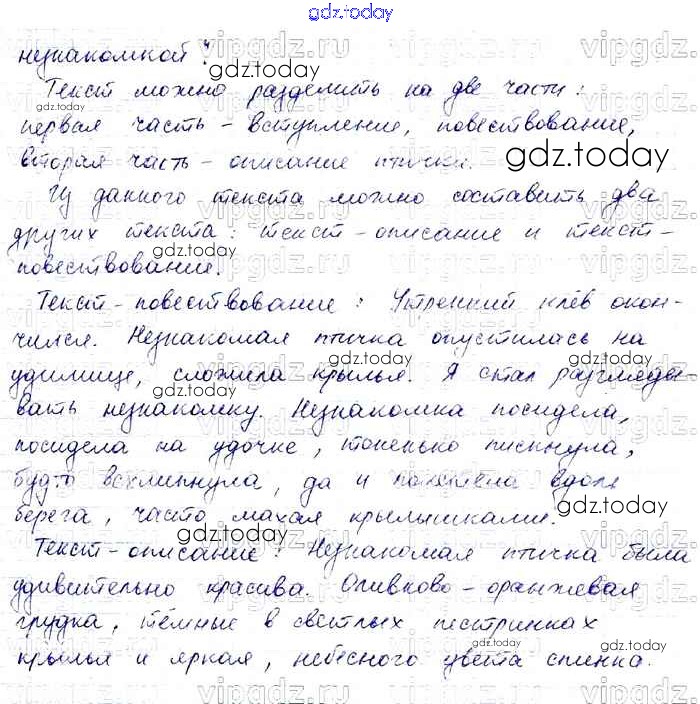 gdz.today
незнакомкой".
Текст можно разделить на две части:
первая часть - вступление, повествование,
вторая часть - описание птички.
Из данного текста можно составить два
других текста: текст-описание и текст-
повествование.
Текст-повествование: Утренний клёв окон-
чился. Незнакомая птичка опустилась на
удилище, сложила крылья. Я стал разгляды-
вать незнакомку. Незнакомка посидела,
посидела на удочке, тоненько пискнула,
будто всхлипнула, да и полетела вдоль
берега, часто махая крылышками.
Текст-описание: Незнакомая птичка была
удивительно красива. Оливково-оранжевая
грудка, тёмные в светлых пестринках
крылья и яркая, небесного цвета спинка.